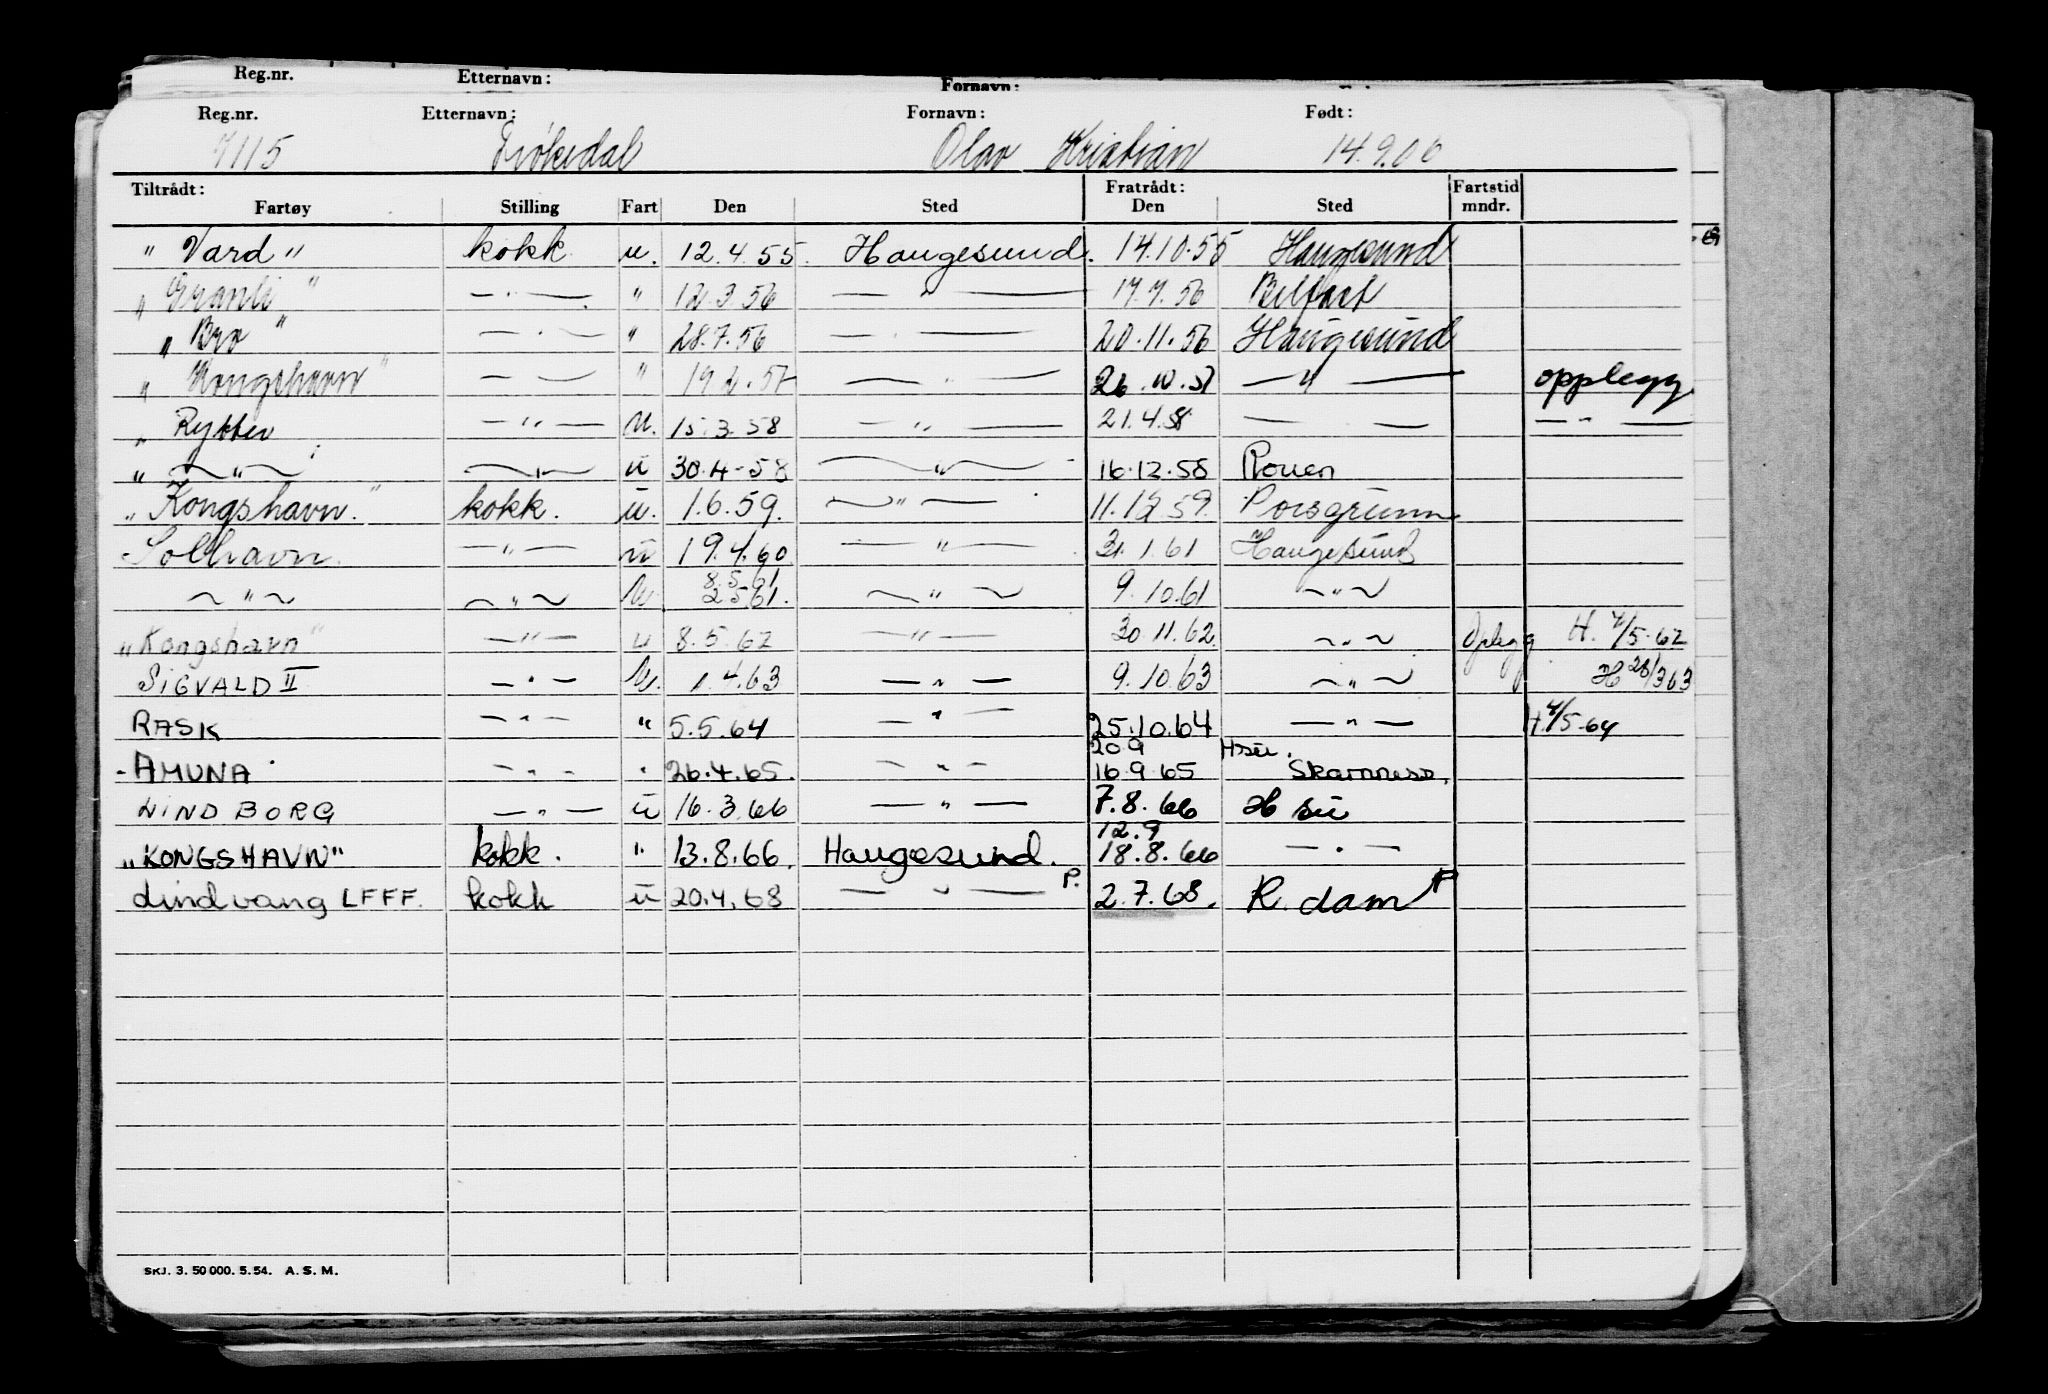 Reg.nr. Etternavn: Fornavn:
Reg.nr. Etternavn: Fornavn: Født:
7115 Olav Kristian 14.9.06
Tiltrådt: Fratrådt: Fartstid
Fartøy Stilling Fart Den Sted Den Sted mndr.
" Vard " kokk u. 12.4.55. Haugesund. 14.10.55 Haugesund
" Granli " — " — " 12.3.56 — " — 17.7.56 Belfast
" Bro " — " — " 28.7.56 20.11.56 Haugesund
" Kongshavn " — " — " — " — 26.10.57 — " — opplegg
" Rytter — " — u. 15.3.58 — " — 21.4.58 — — — " —
" — " — — " — u 30.4-58 — " — 16.12.58 Rouen
" Kongshavn. " kokk. u. 1.6.59. — " — 11.12.59. Porsgrunn
Solhavn. — " — u 19.4.60. — " — 31.1.61 Haugesund
8.5.61
— " — — " — u. 2.5.61. — " — 9.10.61 — " —
" Kongshavn " — " — u 8.5.62 — " — 30.11.62. — " — Oplegg H. 4/5-62
SIGVALD II — " — u. 1.4.63 — " — 9.10.63 — " — H 28/3 63
RASK — " — " 5.5.64 — " — 25.10.64 — " — H. 4/5-64
20.9 Hsu.
- AMUNA — " — " 26.4.65. — " — 16.9.65 Skarnness.
LINDBORG — " — u 16.3.66 — " — 7.8.66 H su
12.9
"KONGSHAVN" kokk. " 13.8.66. Haugesund. 18.8.66 — " —
Lindvang LFFF. kokk u 20.4.68 — " — P. 2.7.68. R.dam P
SKJ. 3. 50 000. 5.54. A. S. M.